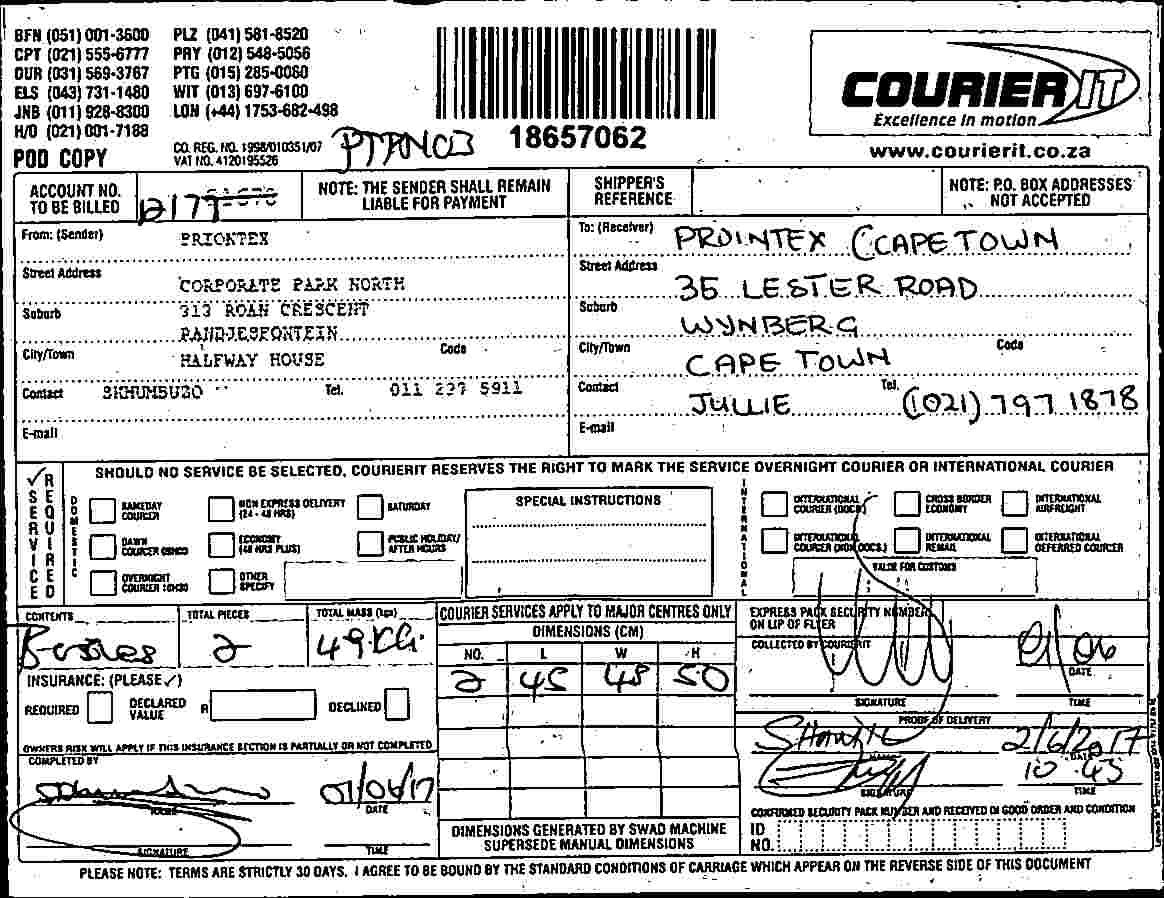 BFN (051) 001-3600 PLZ (041) 581-8520
CPT (021) 555-6777 PRY (012) 548-5056
DUR (031) 569-3767 PTG (015) 285-0080
ELS (043) 731-1480 WIT (013) 697-6100
JNB (011) 928-8300 LON (+44) 1753-682-498
H/O (021) 001-7188
POD COPY
CO. REG. NO. 1998/010351/07
VAT NO. 4120195526
18657062
COURIER IT
Excellence in motion
www.courierit.co.za
ACCOUNT NO. TO BE BILLED 12177
NOTE: THE SENDER SHALL REMAIN LIABLE FOR PAYMENT
SHIPPER'S REFERENCE
NOTE: P.O. BOX ADDRESSES NOT ACCEPTED
From: (Sender) PRIONTEX
Street Address CORPORATE PARK NORTH
Suburb 313 ROAN CRESCENT
RANDJESFONTEIN
City/Town HALFWAY HOUSE Code
Contact SKHUMBUZO Tel. 011 237 5911
E-mail
To: (Receiver) PROINTEX (CAPE TOWN
Street Address 35 LESTER ROAD
Suburb WYNBERG
City/Town CAPE TOWN Code
Contact JULLIE Tel. (021) 797 1878
E-mail
SHOULD NO SERVICE BE SELECTED, COURIERIT RESERVES THE RIGHT TO MARK THE SERVICE OVERNIGHT COURIER OR INTERNATIONAL COURIER
SERVICE REQUIRED
DOMESTIC
SAMEDAY COURIER
NON EXPRESS DELIVERY (24 - 48 HRS)
SATURDAY
DAWN COURIER 08H00
ECONOMY (48 HRS PLUS)
PUBLIC HOLIDAY/ AFTER HOURS
OVERNIGHT COURIER 10H30
OTHER SPECIFY
SPECIAL INSTRUCTIONS
INTERNATIONAL
INTERNATIONAL COURIER (DOCS.)
CROSS BORDER ECONOMY
INTERNATIONAL AIRFREIGHT
INTERNATIONAL COURIER (NON DOCS.)
INTERNATIONAL REMAIL
INTERNATIONAL DEFERRED COURIER
VALUE FOR CUSTOMS
CONTENTS Boxes
TOTAL PIECES 2
TOTAL MASS (kgs) 49KG.
INSURANCE: (PLEASE ✓)
REQUIRED DECLARED VALUE R DECLINED
OWNERS RISK WILL APPLY IF THIS INSURANCE SECTION IS PARTIALLY OR NOT COMPLETED
COMPLETED BY
NAME 01/06/17 DATE
SIGNATURE TIME
COURIER SERVICES APPLY TO MAJOR CENTRES ONLY
DIMENSIONS (CM)
NO. L W H
2 45 48 50
DIMENSIONS GENERATED BY SWAD MACHINE SUPERSEDE MANUAL DIMENSIONS
EXPRESS PACK SECURITY NUMBER ON LIP OF FLYER
COLLECTED BY COURIERIT
DATE
SIGNATURE TIME
PROOF OF DELIVERY
NAME 2/6/2017 DATE
SIGNATURE 10:45 TIME
CONFIRMED SECURITY PACK NUMBER AND RECEIVED IN GOOD ORDER AND CONDITION
ID NO.
PLEASE NOTE: TERMS ARE STRICTLY 30 DAYS. I AGREE TO BE BOUND BY THE STANDARD CONDITIONS OF CARRIAGE WHICH APPEAR ON THE REVERSE SIDE OF THIS DOCUMENT